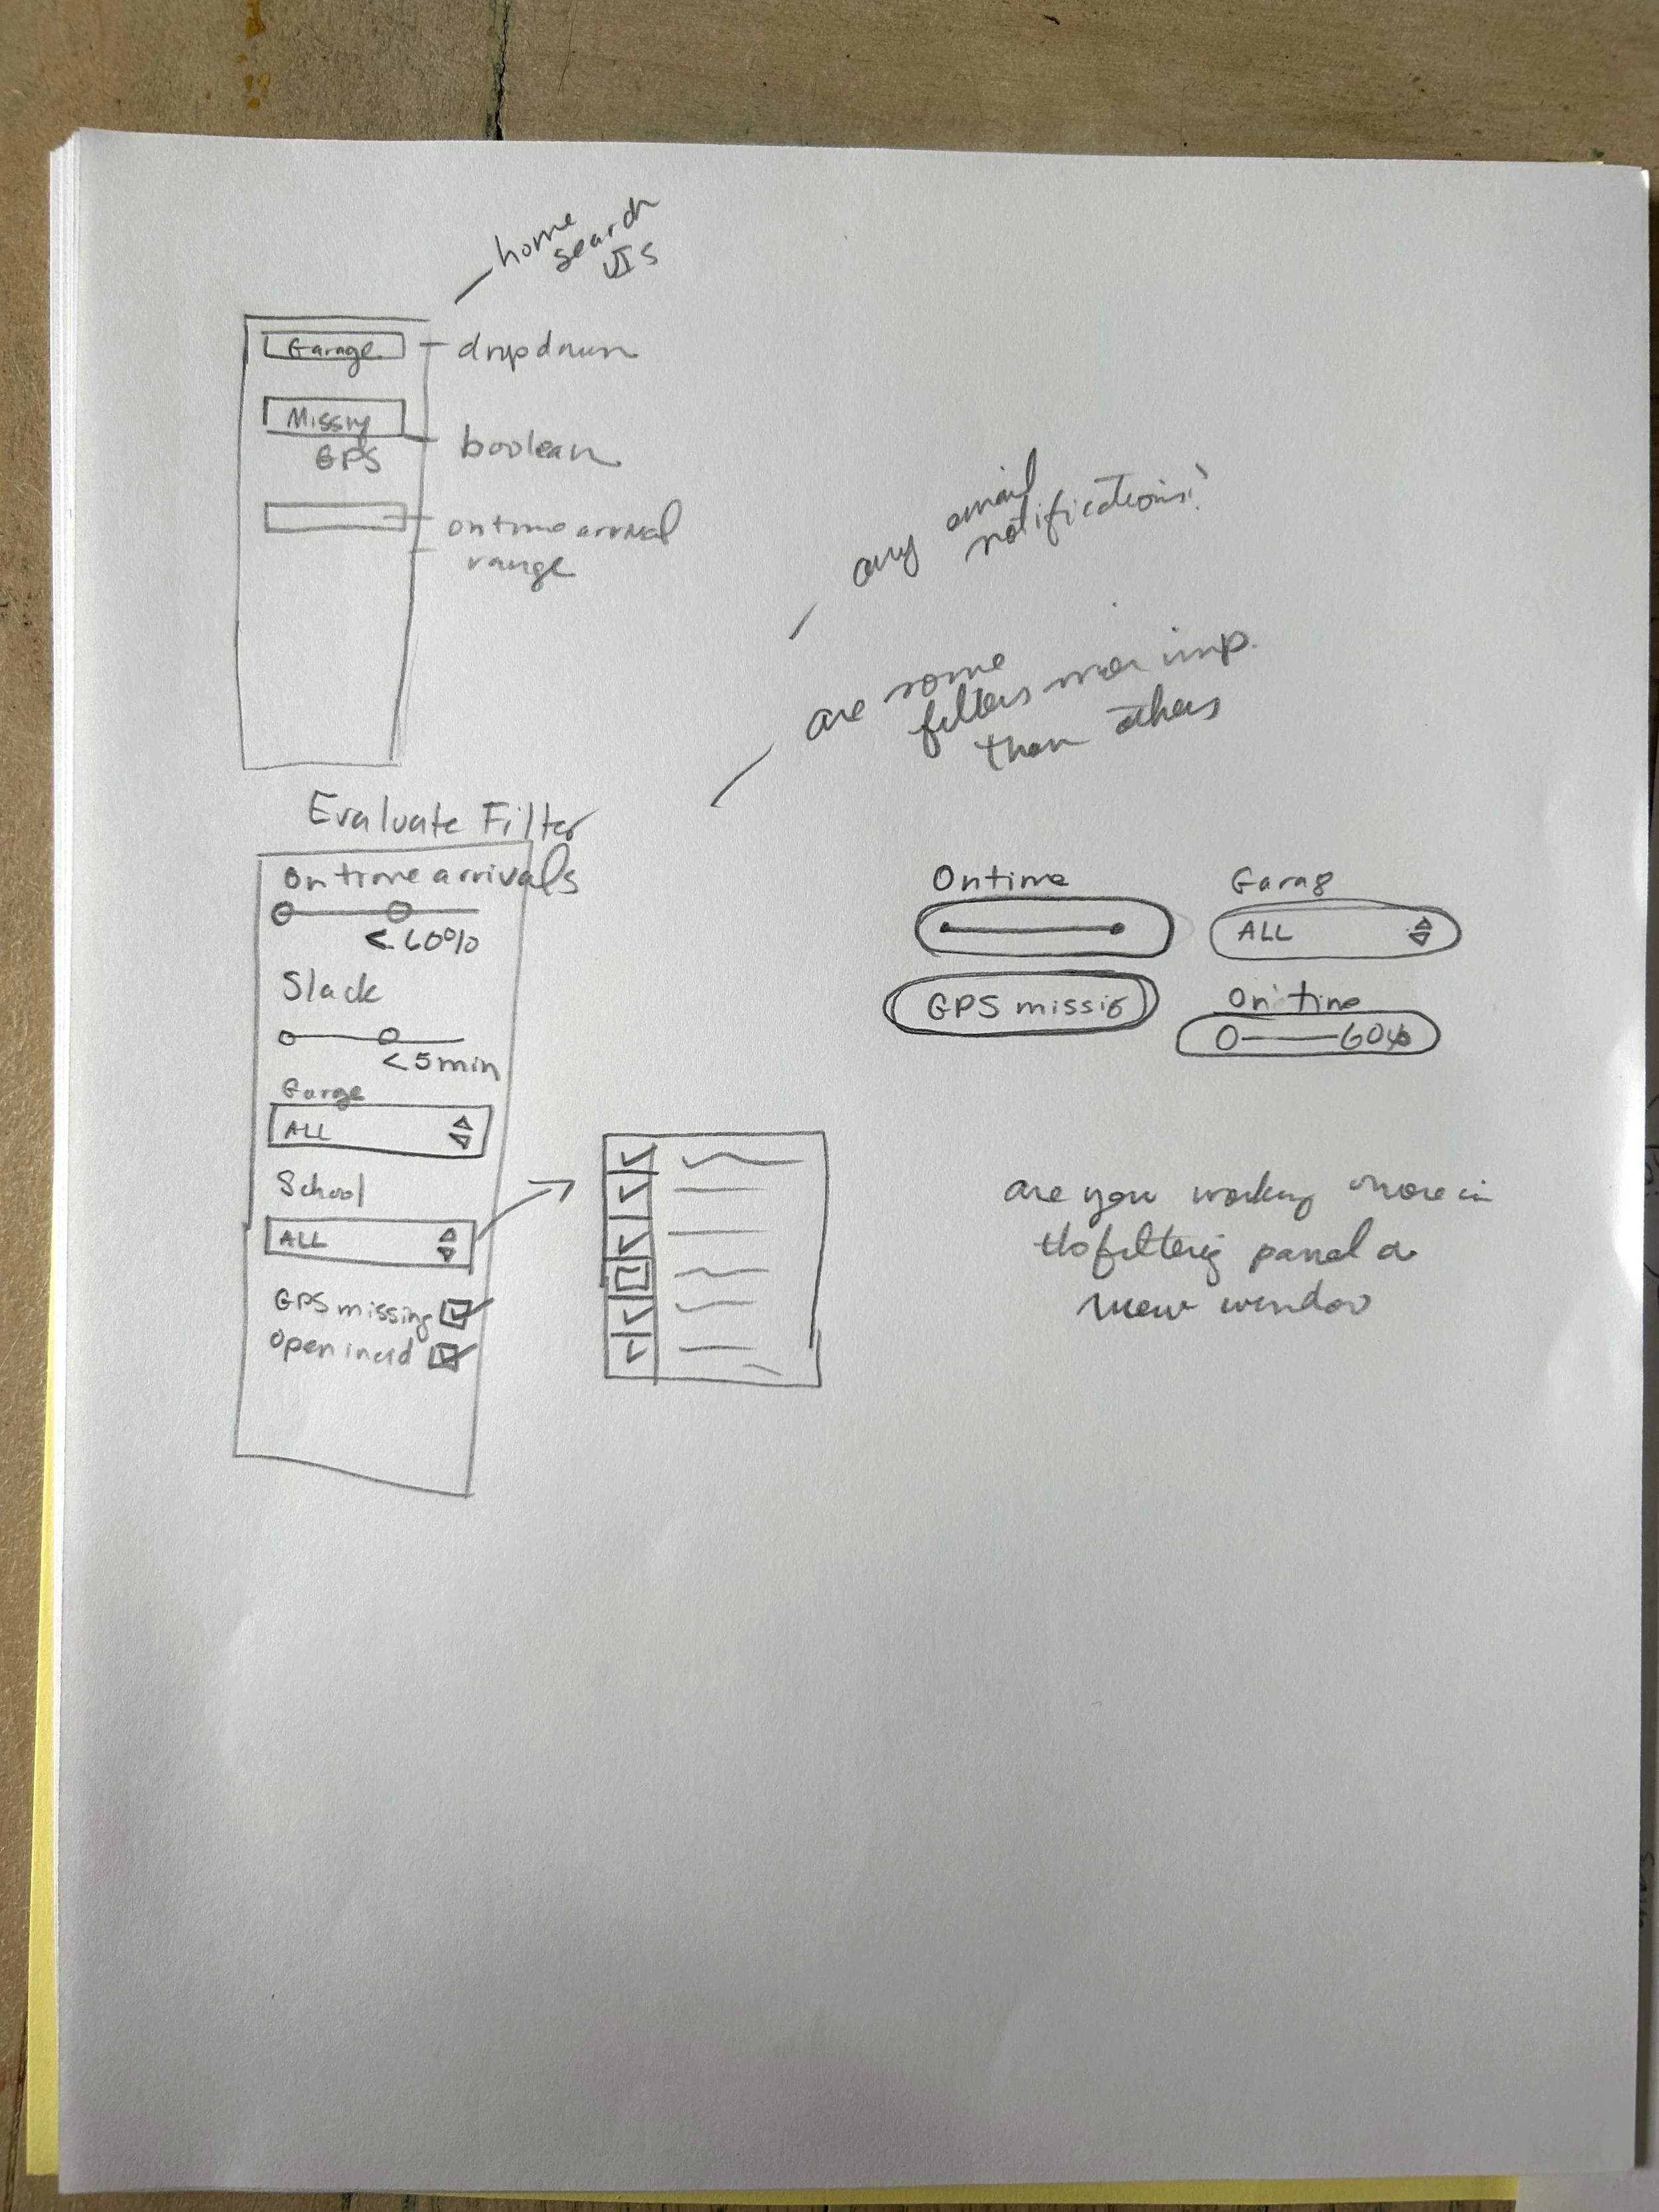 home
search
UIs
Garage
dropdown
Missing
GPS
boolean
on time arrival
range
any email
notifications?
are some
filters more imp.
than others
Evaluate Filter
On time arrivals
< 60%
Slack
< 5min
Garge
ALL
School
ALL
GPS missing
Open incid
Ontime
Garag
ALL
GPS missig
On time
60%
are you working more in
filtering panel or
view window